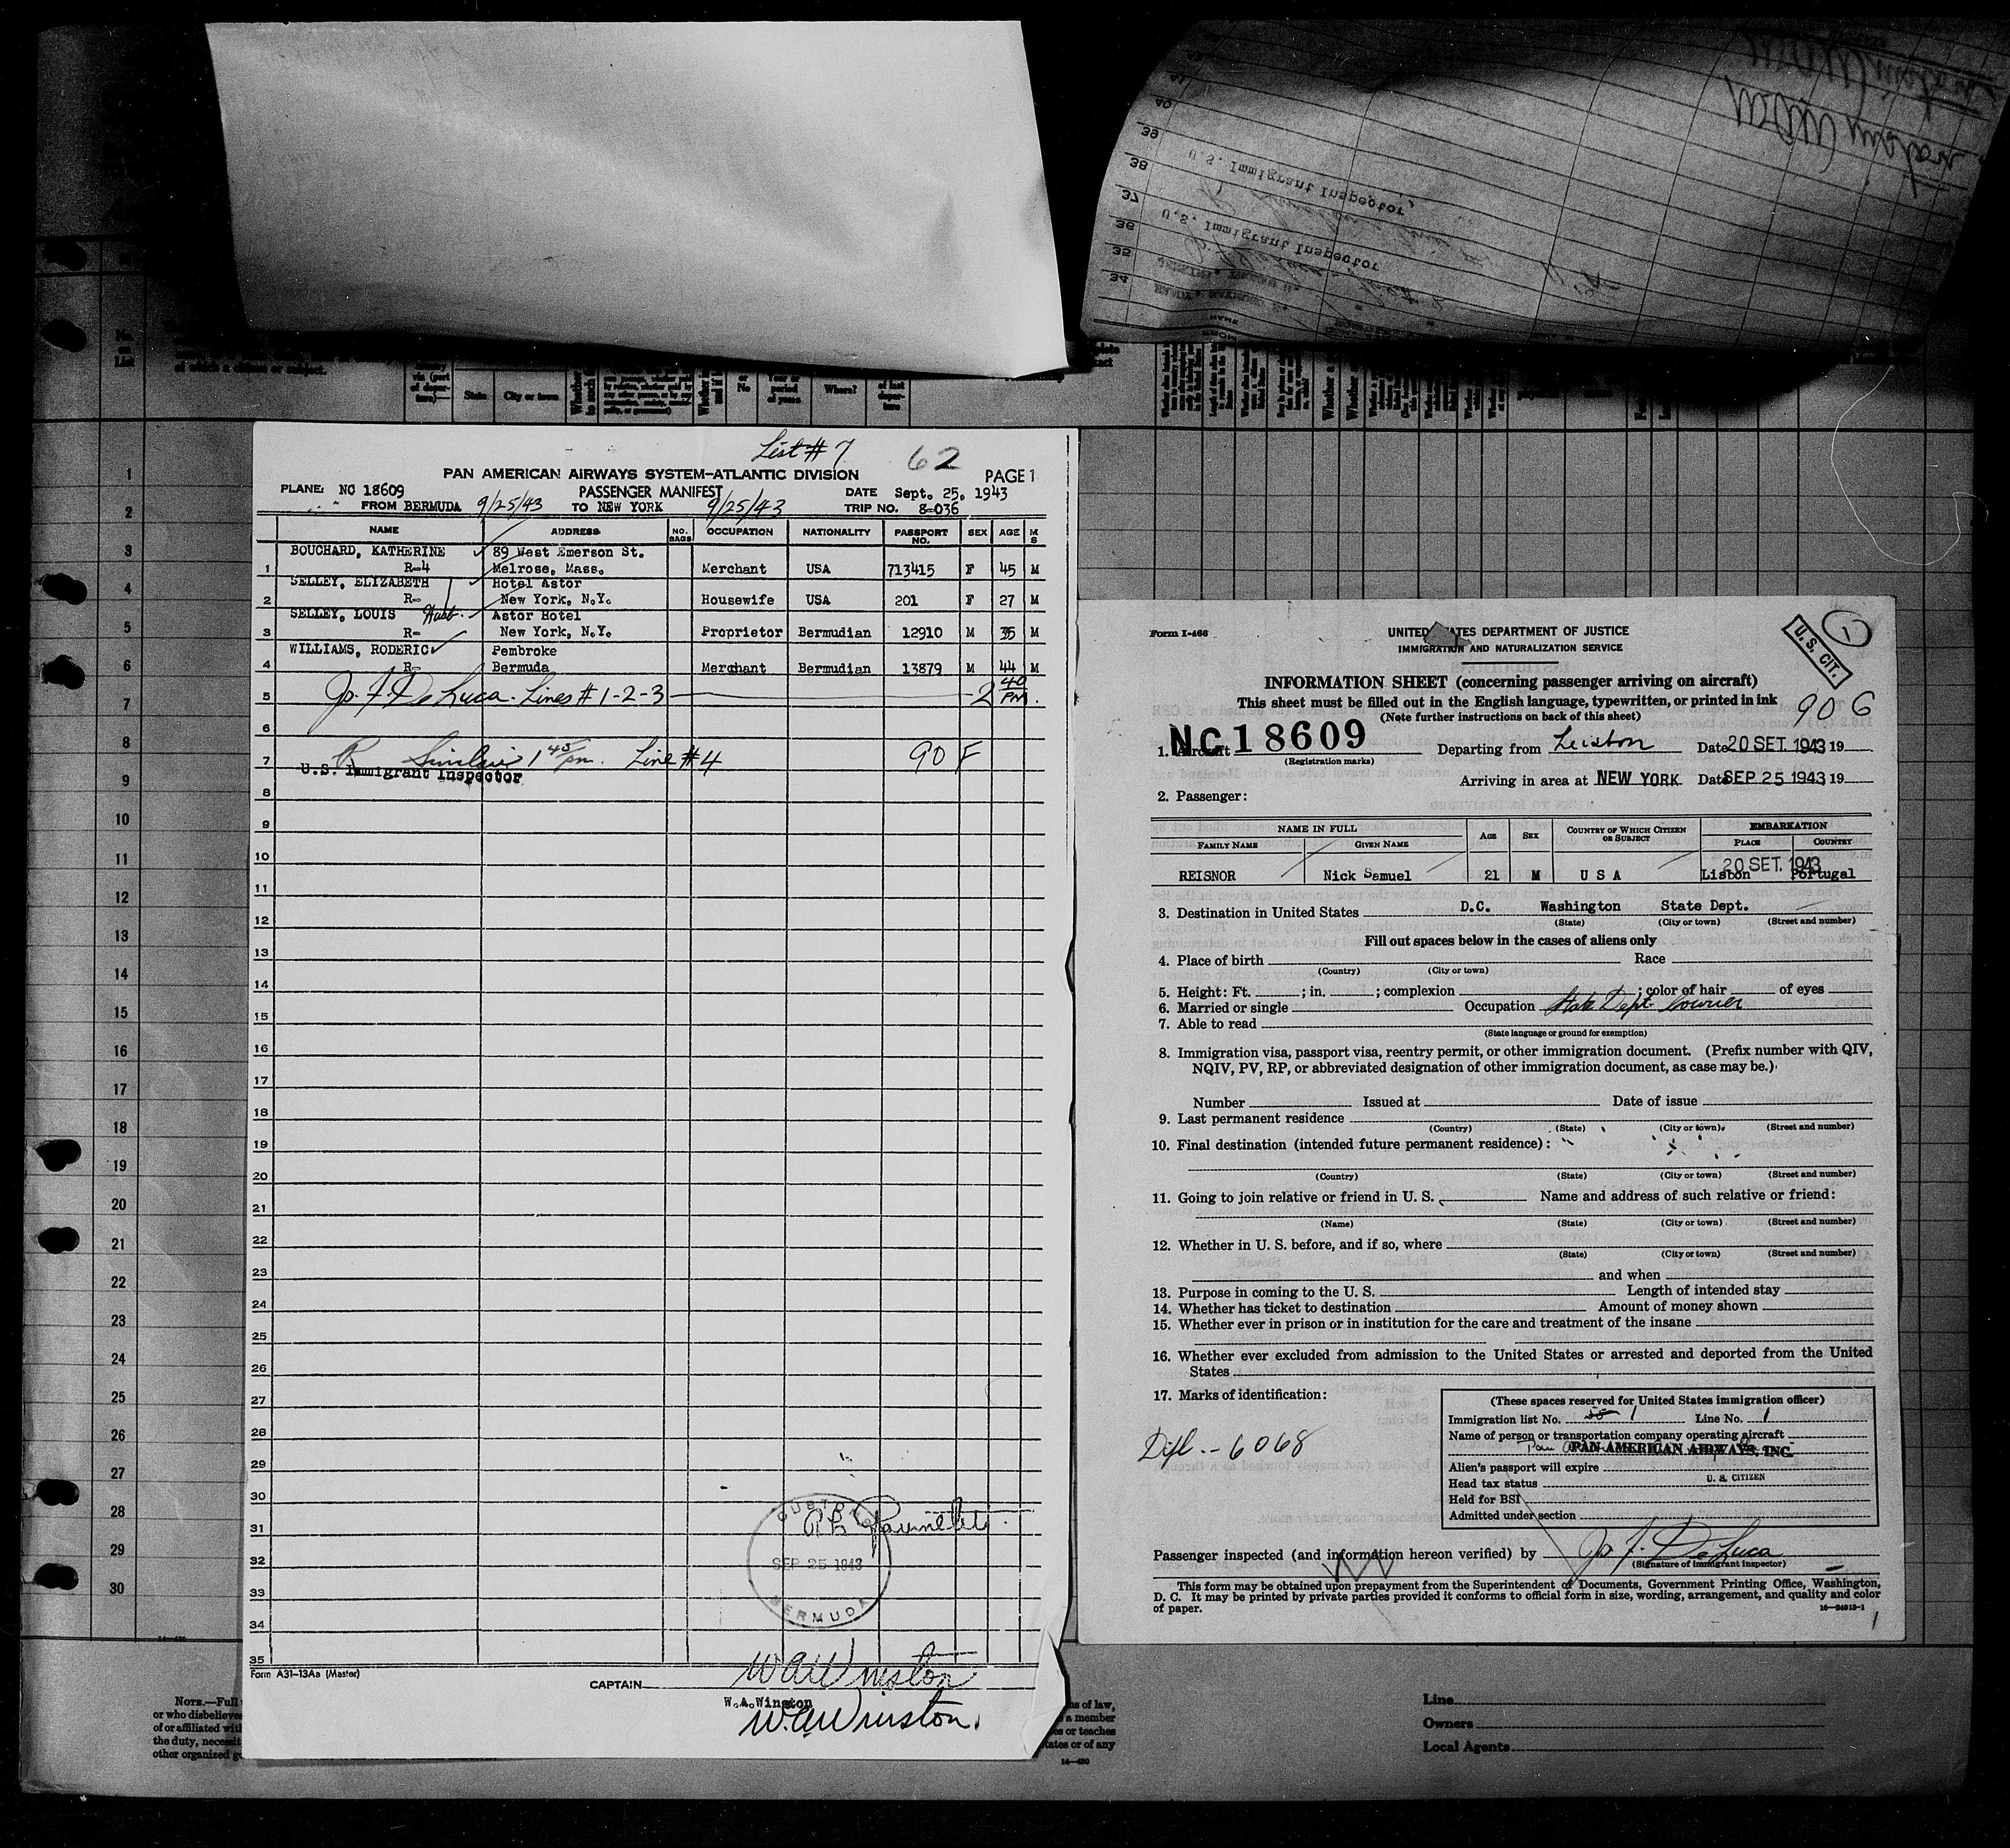 List # 7
62
PAN AMERICAN AIRWAYS SYSTEM-ATLANTIC DIVISION PAGE 1
PLANE: NC 18609 PASSENGER MANIFEST DATE Sept. 25, 1943
FROM BERMUDA 9/25/43 TO NEW YORK 9/25/43 TRIP NO. 8-036
NAME ADDRESS NO. BAGS OCCUPATION NATIONALITY PASSPORT NO. SEX AGE M S
BOUCHARD, KATHERINE 89 West Emerson St.
1 R-4 Melrose, Mass. Merchant USA 713415 F 45 M
SELLEY, ELIZABETH Hotel Astor
2 R- New York, N.Y. Housewife USA 201 F 27 M
SELLEY, LOUIS Husb. Astor Hotel
3 R- New York, N.Y. Proprietor Bermudian 12910 M 35 M
WILLIAMS, RODERIC Pembroke
4 R- Bermuda Merchant Bermudian 13879 M 44 M
5 Jo. F. De Luca. Lines # 1-2-3 2 40 PM.
6
7 R Sinclair 1 45 pm. Line # 4 90 F
U.S. Immigrant Inspector
8
9
10
11
12
13
14
15
16
17
18
19
20
21
22
23
24
25
26
27
28
29
30
31
32
33
34
35
CUSTOMS
SEP 25 1943
BERMUDA
Form A31-13Aa (Master)
CAPTAIN W A Winston
W.A.Winston
W.A. Winston
Form I-466
UNITED STATES DEPARTMENT OF JUSTICE
IMMIGRATION AND NATURALIZATION SERVICE
U. S. CIT.
1
INFORMATION SHEET (concerning passenger arriving on aircraft)
This sheet must be filled out in the English language, typewritten, or printed in ink
(Note further instructions on back of this sheet)
90 G
1. Aircraft NC18609 Departing from Lisbon Date 20 SET. 1943 19
(Registration marks)
Arriving in area at NEW YORK Date SEP 25 1943 19
2. Passenger:
NAME IN FULL AGE SEX COUNTRY OF WHICH CITIZEN OR SUBJECT EMBARKATION
FAMILY NAME GIVEN NAME PLACE COUNTRY
20 SET. 1943
REISNOR Nick Samuel 21 M U S A Lisbon Portugal
3. Destination in United States D.C. Washington State Dept.
(State) (City or town) (Street and number)
Fill out spaces below in the cases of aliens only
4. Place of birth Race
(Country) (City or town)
5. Height: Ft. ; in. ; complexion ; color of hair of eyes
6. Married or single Occupation State Dept. Courier
7. Able to read
(State language or ground for exemption)
8. Immigration visa, passport visa, reentry permit, or other immigration document. (Prefix number with QIV,
NQIV, PV, RP, or abbreviated designation of other immigration document, as case may be.)
Number Issued at Date of issue
9. Last permanent residence
(Country) (State) (City or town) (Street and number)
10. Final destination (intended future permanent residence):
(Country) (State) (City or town) (Street and number)
11. Going to join relative or friend in U. S. Name and address of such relative or friend:
(Name) (State) (City or town) (Street and number)
12. Whether in U. S. before, and if so, where
(State) (City or town) (Street and number)
and when
13. Purpose in coming to the U. S. Length of intended stay
14. Whether has ticket to destination Amount of money shown
15. Whether ever in prison or in institution for the care and treatment of the insane
16. Whether ever excluded from admission to the United States or arrested and deported from the United
States
17. Marks of identification:
Dipl. - 6068
(These spaces reserved for United States immigration officer)
Immigration list No. 1 Line No. 1
Name of person or transportation company operating aircraft
PAN AMERICAN AIRWAYS, INC.
Alien's passport will expire
U. S. CITIZEN
Head tax status
Held for BSI
Admitted under section
Passenger inspected (and information hereon verified) by Jo. F. De Luca
(Signature of immigrant inspector)
This form may be obtained upon prepayment from the Superintendent of Documents, Government Printing Office, Washington,
D. C. It may be printed by private parties provided it conforms to official form in size, wording, arrangement, and quality and color
of paper.
16-24915-1
1
1
2
3
4
5
6
7
8
9
10
11
12
13
14
15
16
17
18
19
20
21
22
23
24
25
26
27
28
29
30
34
35
36
37
38
39
40
U.S. Immigrant Inspector
U.S. Immigrant Inspector
State City or town
Where?
NOTE.—Full
or who disbelieve
of or affiliated with
the duty, necessit
other organized g
ns of law,
a member
es or teaches
tates or of any
14-430
Line
Owners
Local Agents